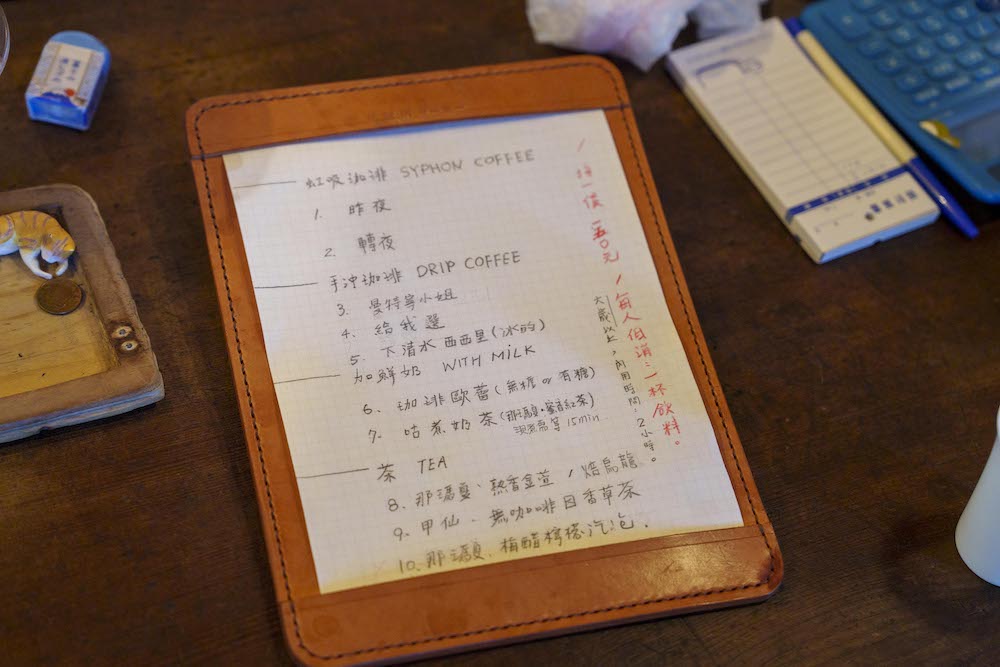 虹吸珈琲 SYPHON COFFEE
1. 昨夜
2. 轉夜
手沖珈琲 DRIP COFFEE
3. 曼特寧小姐
4. 給我選
5. 下清水西西里(冰的)
加鮮奶 WITH MILK
6. 珈琲歐蕾(無糖 or 有糖)
7. 咕煮奶茶(那瑪夏・蜜香紅茶)
現煮需等 15min
茶 TEA
8. 那瑪夏、熟香金萱 / 焙烏龍
9. 甲仙、無咖啡因香草茶
10. 那瑪夏、梅醋檸檬汽泡.
/ 擇一價 一五〇元 / 每人低消:一杯飲料。
六歲以上,內用時間,2小時。